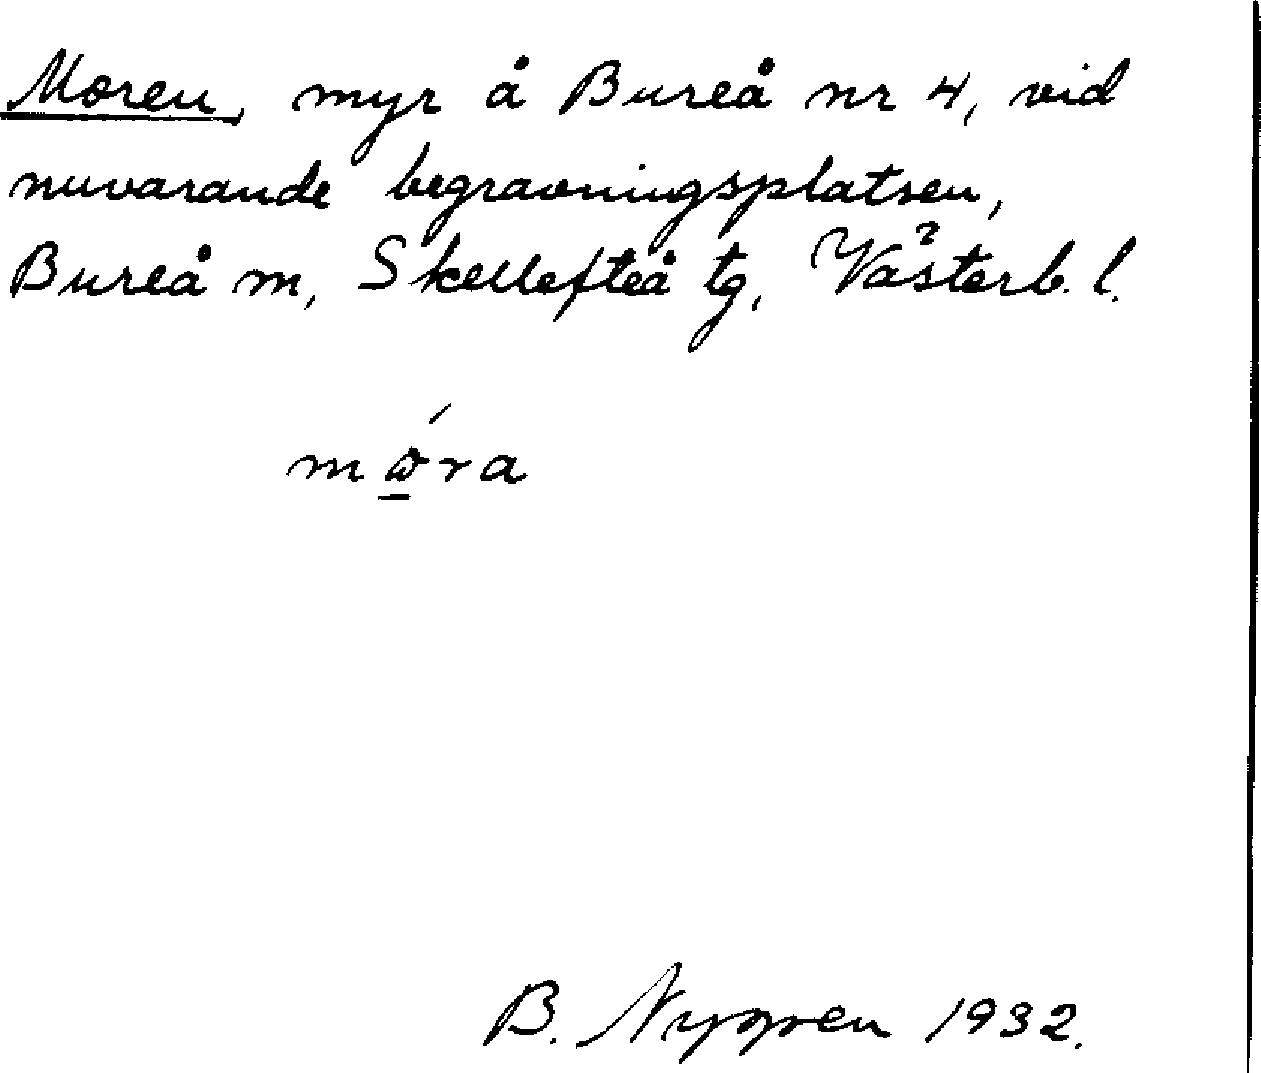 Moren, myr å Bureå nr 4, vid
nuvarande begravningsplatsen,
Bureå m, Skellefteå tg, Västerb. l.
B. Nygren 1932.